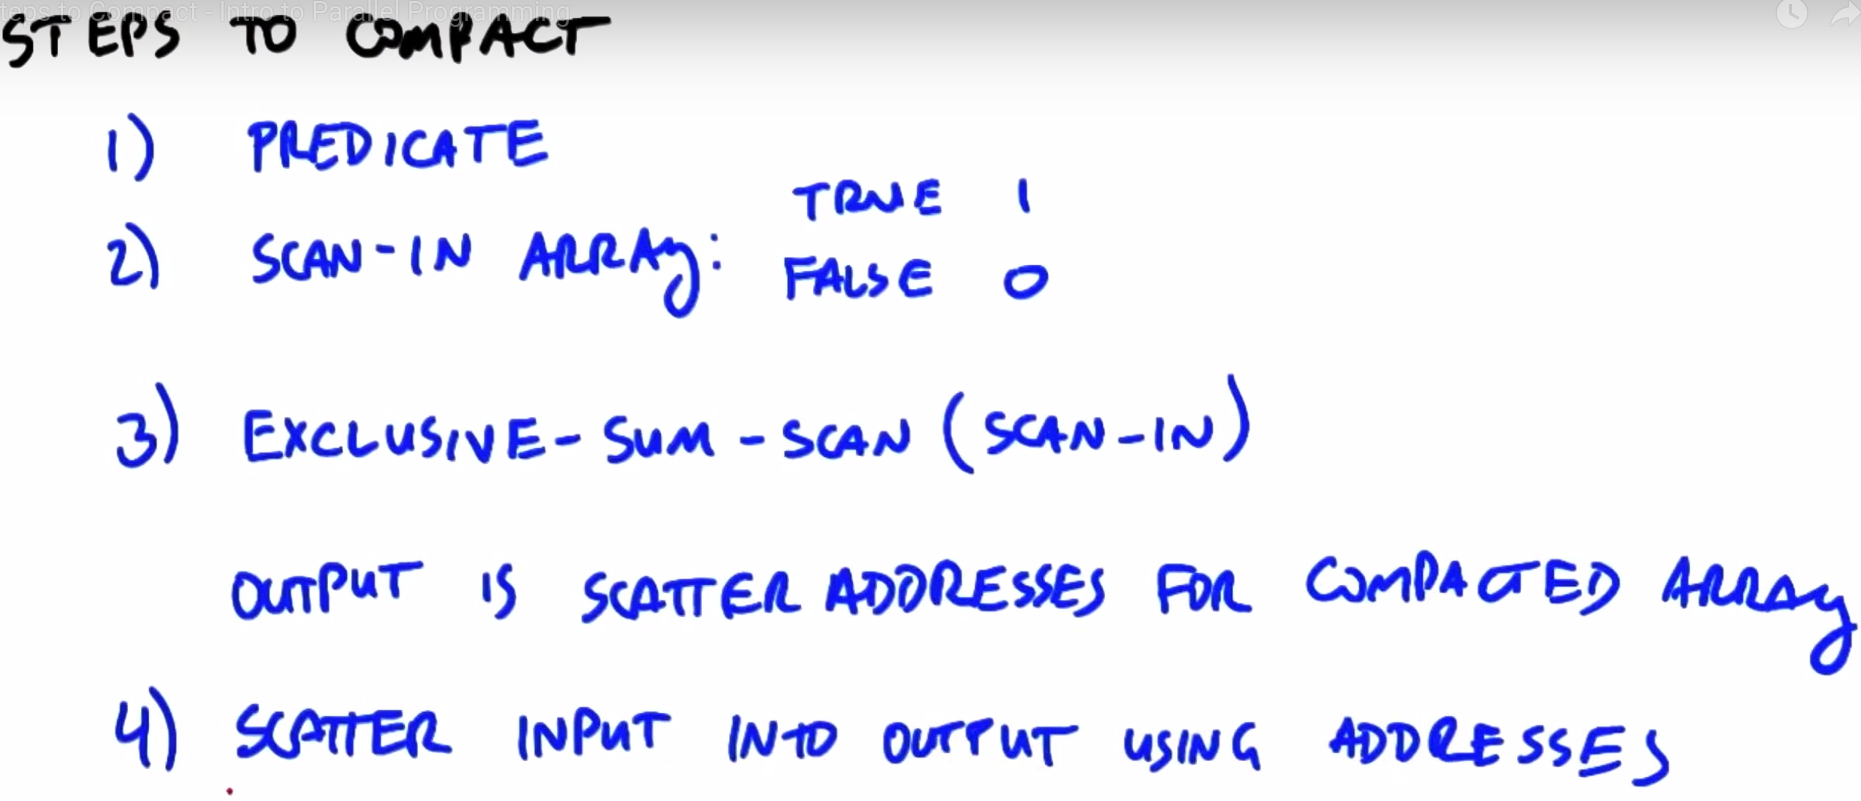 Steps to Compact - Intro to Parallel Programming
STEPS TO COMPACT
1) PREDICATE
2) SCAN-IN ARRAY: TRUE 1
FALSE 0
3) EXCLUSIVE-SUM-SCAN (SCAN-IN)
OUTPUT IS SCATTER ADDRESSES FOR COMPACTED ARRAY
4) SCATTER INPUT INTO OUTPUT USING ADDRESSES